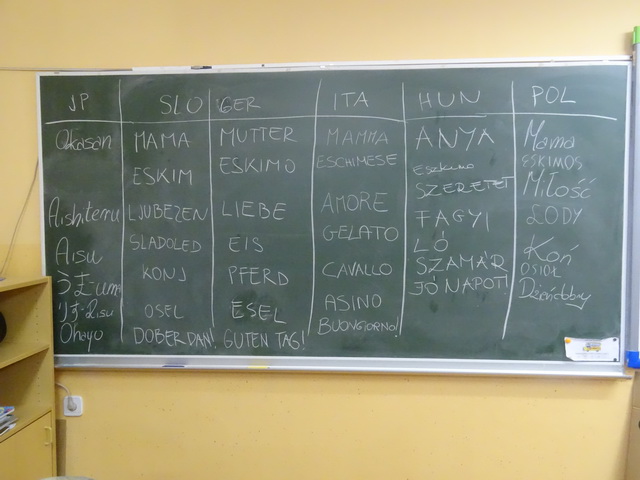 JP SLO GER ITA HUN POL
Okasan MAMA MUTTER MAMMA ANYA Mama
ESKIM ESKIMO ESCHIMESE Eszkimo ESKIMOS
Aishiteru LJUBEZEN LIEBE AMORE SZERETET Miłość
Aisu SLADOLED EIS GELATO FAGYI LODY
KONJ PFERD CAVALLO LÓ Koń
OSEL ESEL ASINO SZAMÁR OSIOŁ
Ohayo DOBERDAN! GUTEN TAG! BUONGIORNO! JÓ NAPOT! Dzieńdobry